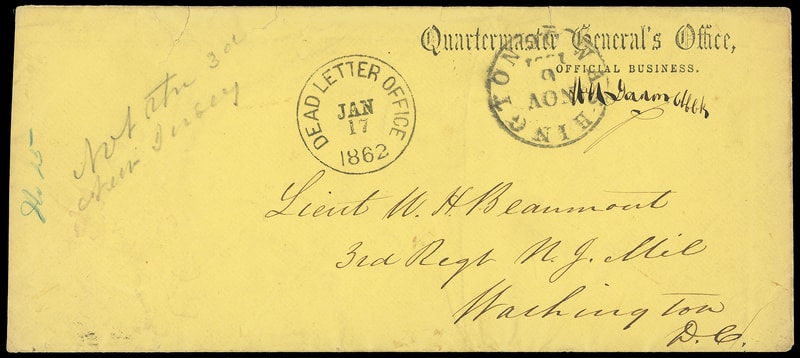 Quartermaster General's Office,
OFFICIAL BUSINESS.
WASHINGTON
NOV
6
1861
DEAD LETTER OFFICE
JAN
17
1862
Not
3d
New Jersey
Lieut W. H. Beaumont
3rd Regt N. J. Mil
Washington
D.C.